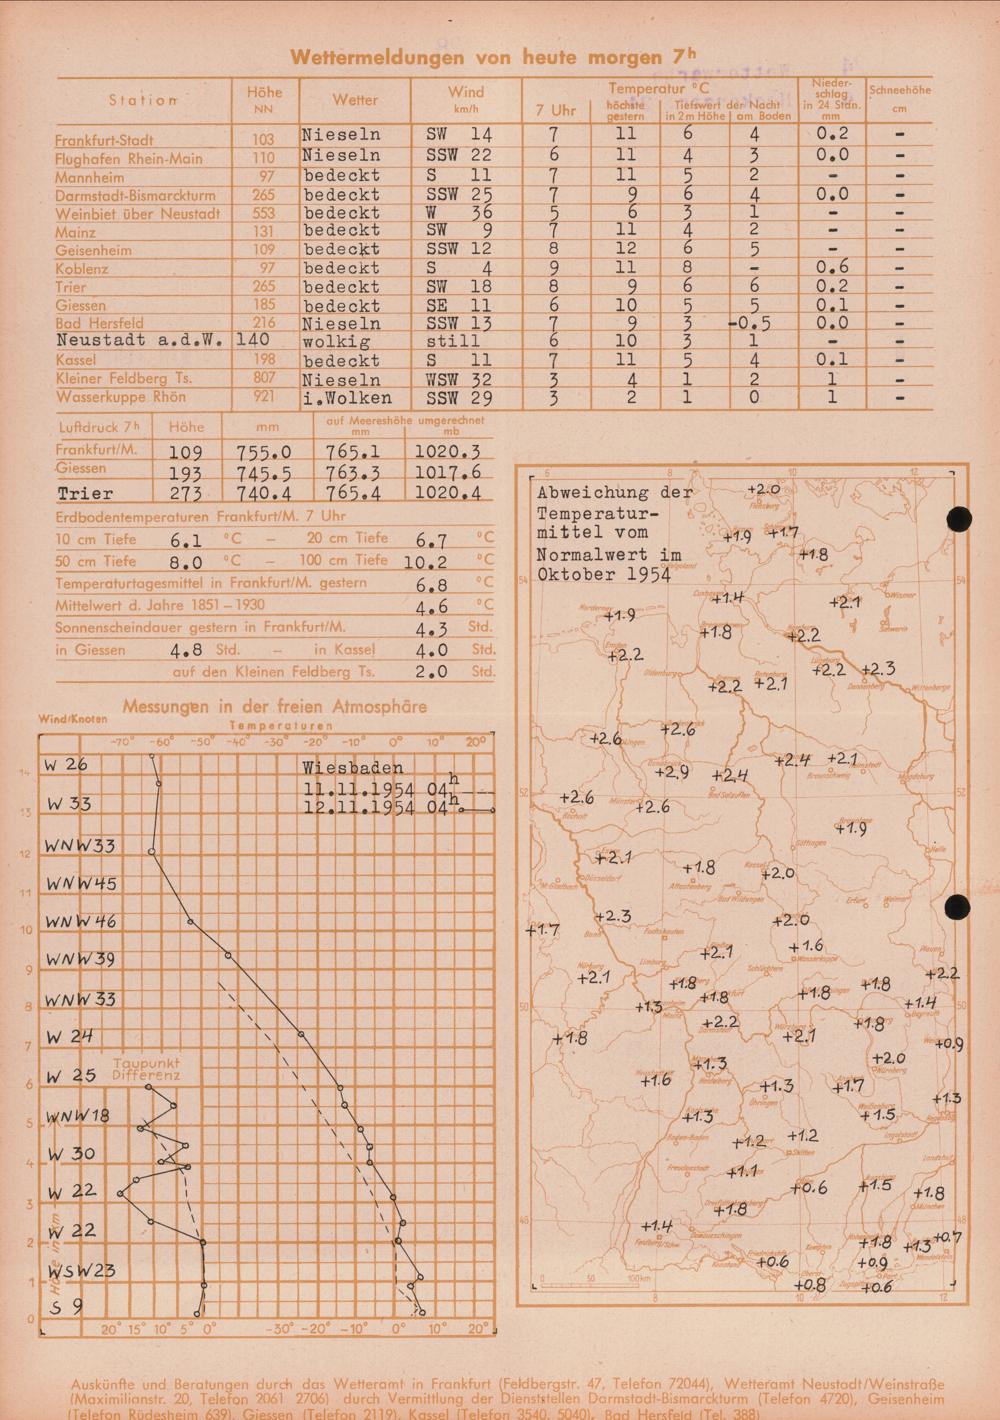 Wettermeldungen von heute morgen 7h
Station Höhe NN Wetter Wind km/h Temperatur °C 7 Uhr höchste gestern Tiefstwert der Nacht in 2m Höhe am Boden Niederschlag in 24 Stdn. mm Schneehöhe cm
Frankfurt-Stadt 103 Nieseln SW 14 7 11 6 4 0.2 -
Flughafen Rhein-Main 110 Nieseln SSW 22 6 11 4 3 0.0 -
Mannheim 97 bedeckt S 11 7 11 5 2 - -
Darmstadt-Bismarckturm 265 bedeckt SSW 25 7 9 6 4 0.0 -
Weinbiet über Neustadt 553 bedeckt W 36 5 6 3 1 - -
Mainz 131 bedeckt SW 9 7 11 4 2 - -
Geisenheim 109 bedeckt SSW 12 8 12 6 5 - -
Koblenz 97 bedeckt S 4 9 11 8 - 0.6 -
Trier 265 bedeckt SW 18 8 9 6 6 0.2 -
Giessen 185 bedeckt SE 11 6 10 5 5 0.1 -
Bad Hersfeld 216 Nieseln SSW 13 7 9 3 -0.5 0.0 -
Neustadt a.d.W. 140 wolkig still 6 10 3 1 - -
Kassel 198 bedeckt S 11 7 11 5 4 0.1 -
Kleiner Feldberg Ts. 807 Nieseln WSW 32 3 4 1 2 1 -
Wasserkuppe Rhön 921 i.Wolken SSW 29 3 2 1 0 1 -
Luftdruck 7h Höhe mm auf Meereshöhe umgerechnet mm mb
Frankfurt/M. 109 755.0 765.1 1020.3
Giessen 193 745.5 763.3 1017.6
Trier 273 740.4 765.4 1020.4
Erdbodentemperaturen Frankfurt/M. 7 Uhr
10 cm Tiefe 6.1 °C – 20 cm Tiefe 6.7 °C
50 cm Tiefe 8.0 °C – 100 cm Tiefe 10.2 °C
Temperaturtagesmittel in Frankfurt/M. gestern 6.8 °C
Mittelwert d. Jahre 1851–1930 4.6 °C
Sonnenscheindauer gestern in Frankfurt/M. 4.3 Std.
in Giessen 4.8 Std. – in Kassel 4.0 Std.
auf den Kleinen Feldberg Ts. 2.0 Std.
Messungen in der freien Atmosphäre
Wind/Knoten Temperaturen
-70° -60° -50° -40° -30° -20° -10° 0° 10° 20°
Wiesbaden
11.11.1954 04h
12.11.1954 04h
W 26
14
W 33
13
WNW 33
12
WNW 45
11
WNW 46
10
WNW 39
9
WNW 33
8
W 24
7
W 25
Taupunkt
Differenz
6
WNW 18
5
W 30
4
W 22
3
W 22
2
WSW 23
1
S 9
0
Höhe in km
20° 15° 10° 5° 0° -30° -20° -10° 0° 10° 20°
Abweichung der
Temperatur-
mittel vom
Normalwert im
Oktober 1954
6 8 10 12
+2.0
+1.9 +1.7
+1.8
54 54
+1.4 +2.1
+1.9
+1.8 +2.2
+2.2 +2.2 +2.3
+2.2 +2.1
+2.6 +2.6
+2.9 +2.4 +2.4 +2.1
52 52
+2.6 +2.6
+1.9
+2.1 +1.8 +2.0
+2.3 +2.0
+1.7 +2.1 +1.6
+2.1 +1.8 +1.8 +2.2
+1.3 +1.8 +1.8 +1.4
50 50
+1.8 +2.2 +2.1 +1.8 +0.9
+1.3 +2.0
+1.6 +1.3 +1.7 +1.3
+1.3 +1.5
+1.2 +1.2
+1.1 +0.6 +1.5 +1.8
+1.8
48 48
+1.4 +1.8 +1.3 +0.7
+0.6 +0.9
+0.8 +0.6
0 50 100km
8 10 12
Auskünfte und Beratungen durch das Wetteramt in Frankfurt (Feldbergstr. 47, Telefon 72044), Wetteramt Neustadt/Weinstraße
(Maximilianstr. 20, Telefon 2061 2706) durch Vermittlung der Dienststellen Darmstadt-Bismarckturm (Telefon 4720), Geisenheim
(Telefon Rüdesheim 639), Giessen (Telefon 2119), Kassel (Telefon 3540, 5040), Bad Hersfeld (Tel. 388)